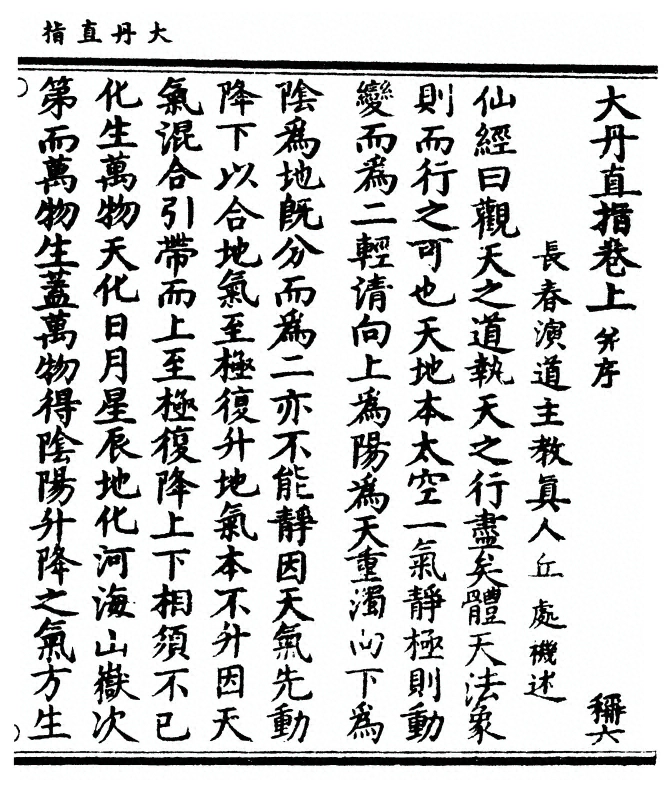 大丹直指
大丹直指卷上 并序 稱六
長春演道主教眞人丘處機述
仙經曰觀天之道執天之行盡矣體天法象
則而行之可也天地本太空一氣靜極則動
變而爲二輕清向上爲陽爲天重濁向下爲
陰爲地既分而爲二亦不能靜因天氣先動
降下以合地氣至極復升地氣本不升因天
氣混合引帶而上至極復降上下相須不已
化生萬物天化日月星辰地化河海山嶽次
第而萬物生蓋萬物得陰陽升降之氣方生